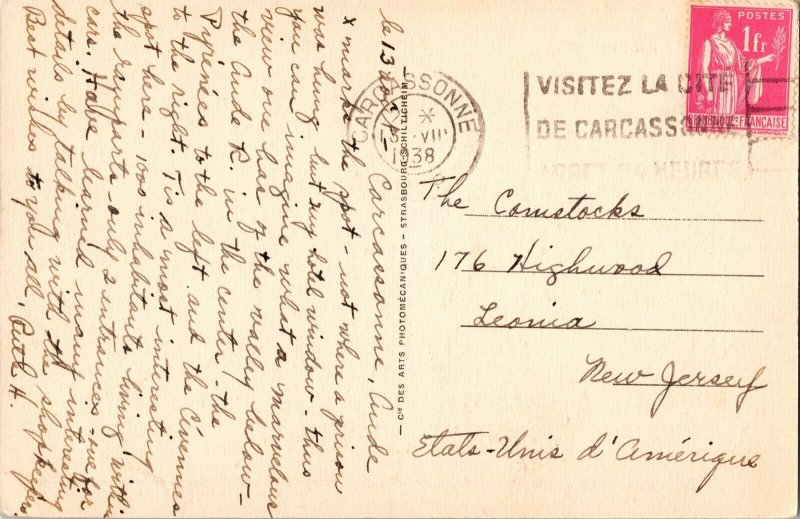 le 13 août - Carcassonne, Aude
x marks the spot - not where a prison
was hung but my hotel window - thus
you can imagine what a marvelous
view one has of the valley below -
the Aude R. in the center - the
Pyrénées to the left and the Cévennes
to the right. Tis a most interesting
spot here - 1000 inhabitants living within
the ramparts only 2 entrances - one for
cars. Have learned many interesting
details by talking with the shopkeepers
Best wishes to you all, Ruth H.
— Cie DES ARTS PHOTOMÉCANIQUES - STRASBOURG-SCHILTIGHEIM —
CARCASSONNE
VIII
38
VISITEZ LA CITÉ
DE CARCASSONNE
POSTES
1fr
RÉPUBLIQUE FRANÇAISE
The Comstocks
176 Highwood
Leonia
New Jersey
Etats-Unis d'Amérique